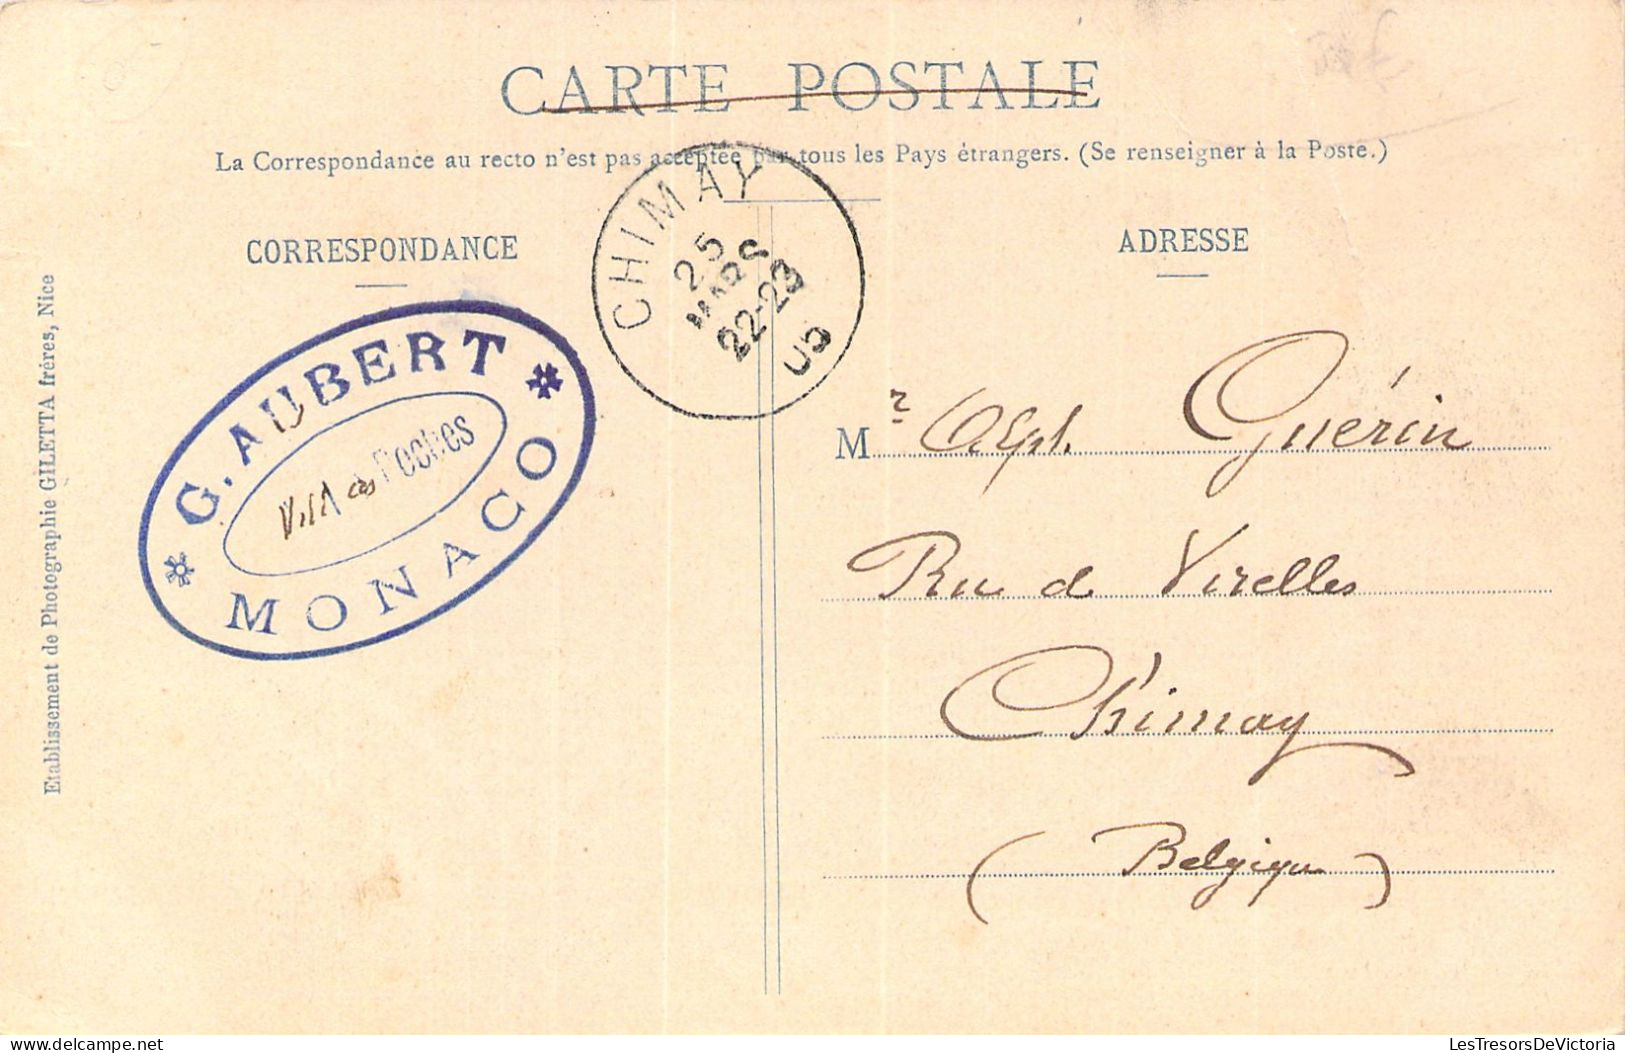 CARTE POSTALE
La Correspondance au recto n'est pas acceptée par tous les Pays étrangers. (Se renseigner à la Poste.)
CORRESPONDANCE
ADRESSE
CHIMAY
25
MARS
22-23
05
G. AUBERT
Roches
MONACO
Etablissement de Photographie GILETTA frères, Nice
Mr Alph. Guérin
Rue de Virelles
Chimay
(Belgique)
LesTresorsDeVictoria